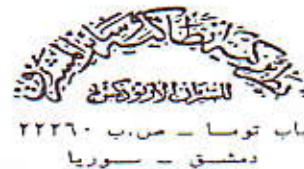 بطريركية انطاكية وسائر المشرق
للسريان الارثوذكس
باب توما – ص.ب ٢٢٢٦٠
دمشق – سوريا